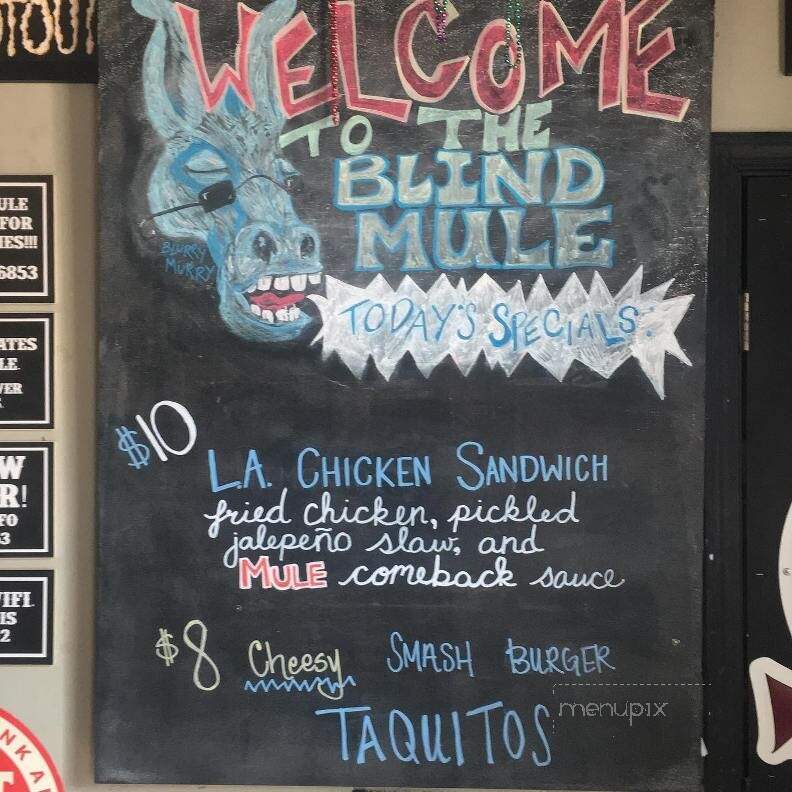 WELCOME
TO THE
BLIND
MULE
BLURRY
MURRY
TODAY'S SPECIALS:
$10
L.A. CHICKEN SANDWICH
fried chicken, pickled
jalepeño slaw, and
MULE comeback sauce
$8 Cheesy SMASH BURGER
TAQUITOS
menupix
ULE
FOR
IES!!!
6853
ATES
LE.
VER
W
R!
FO
3
IFI.
IS
2